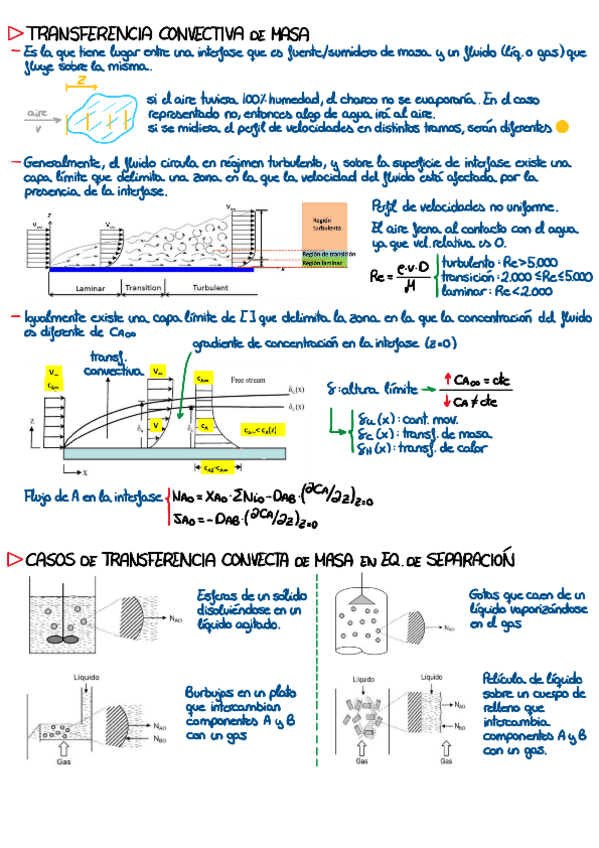 TRANSFERENCIA CONVECTIVA DE MASA
– Es la que tiene lugar entre una interfase que es fuente/sumidero de masa y un fluido (líq. o gas) que
fluye sobre la misma..
z
aire
v
si el aire tuviera 100% humedad, el charco no se evaporaría. En el caso
representado no, entonces algo de agua irá al aire.
si se midiera el perfil de velocidades en distintos tramos, serán diferentes
– Generalmente, el fluido circula en régimen turbulento, y sobre la superficie de interfase existe una
capa límite que delimita una zona en la que la velocidad del fluido está afectada por la
presencia de la interfase.
z
V∞
V∞
V∞
x
Laminar
Transition
Turbulent
Región turbulenta
Región de transición
Región laminar
Perfil de velocidades no uniforme.
El aire frena al contacto con el agua
ya que vel. relativa es 0.
Re = ρ·v·D / μ
turbulento: Re > 5.000
transición: 2.000 ≤ Re ≤ 5.000
laminar: Re < 2.000
– Igualmente existe una capa límite de [ ] que delimita la zona en la que la concentración del fluido
es diferente de CA∞
gradiente de concentración en la interfase (z=0)
transf.
convectiva
V∞
cA∞
V∞
cA∞
Free stream
δu(x)
δc(x)
Z
V
cA
cA∞ < cA(z)
x
cA0-cA∞
δ: altura límite
↑ CA∞ = cte
↓ CA ≠ cte
δu(x): cant. mov.
δc(x): transf. de masa
δH(x): transf. de calor
Flujo de A en la interfase
NA0 = XA0 · ΣNi0 – DAB · (∂CA/∂z)z=0
JA0 = – DAB · (∂CA/∂z)z=0
CASOS DE TRANSFERENCIA CONVECTA DE MASA EN EQ. DE SEPARACIÓN
NA0
Esferas de un sólido
disolviéndose en un
líquido agitado.
NA0
Gotas que caen de un
líquido vaporizándose
en el gas
Líquido
NA0
NB0
Gas
Burbujas en un plato
que intercambian
componentes A y B
con un gas
Líquido
Líquido
NA0
NB0
Gas
Gas
Película de líquido
sobre un cuerpo de
relleno que
intercambia
componentes A y B
con un gas.